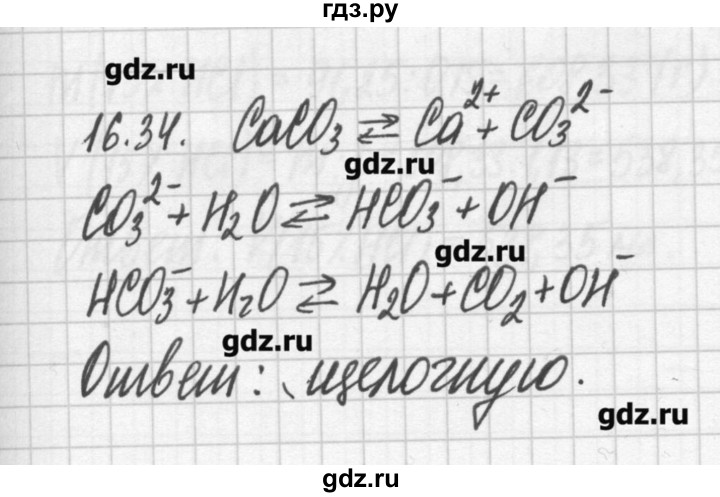 гдз.ру
gdz.ru
16.34. CaCO₃ ⇄ Ca²⁺ + CO₃²⁻
gdz.ru
CO₃²⁻ + H₂O ⇄ HCO₃⁻ + OH⁻
gdz.ru
HCO₃⁻ + H₂O ⇄ H₂O + CO₂ + OH⁻
gdz.ru
Ответ: щелочную.
gdz.ru
gdz.ru